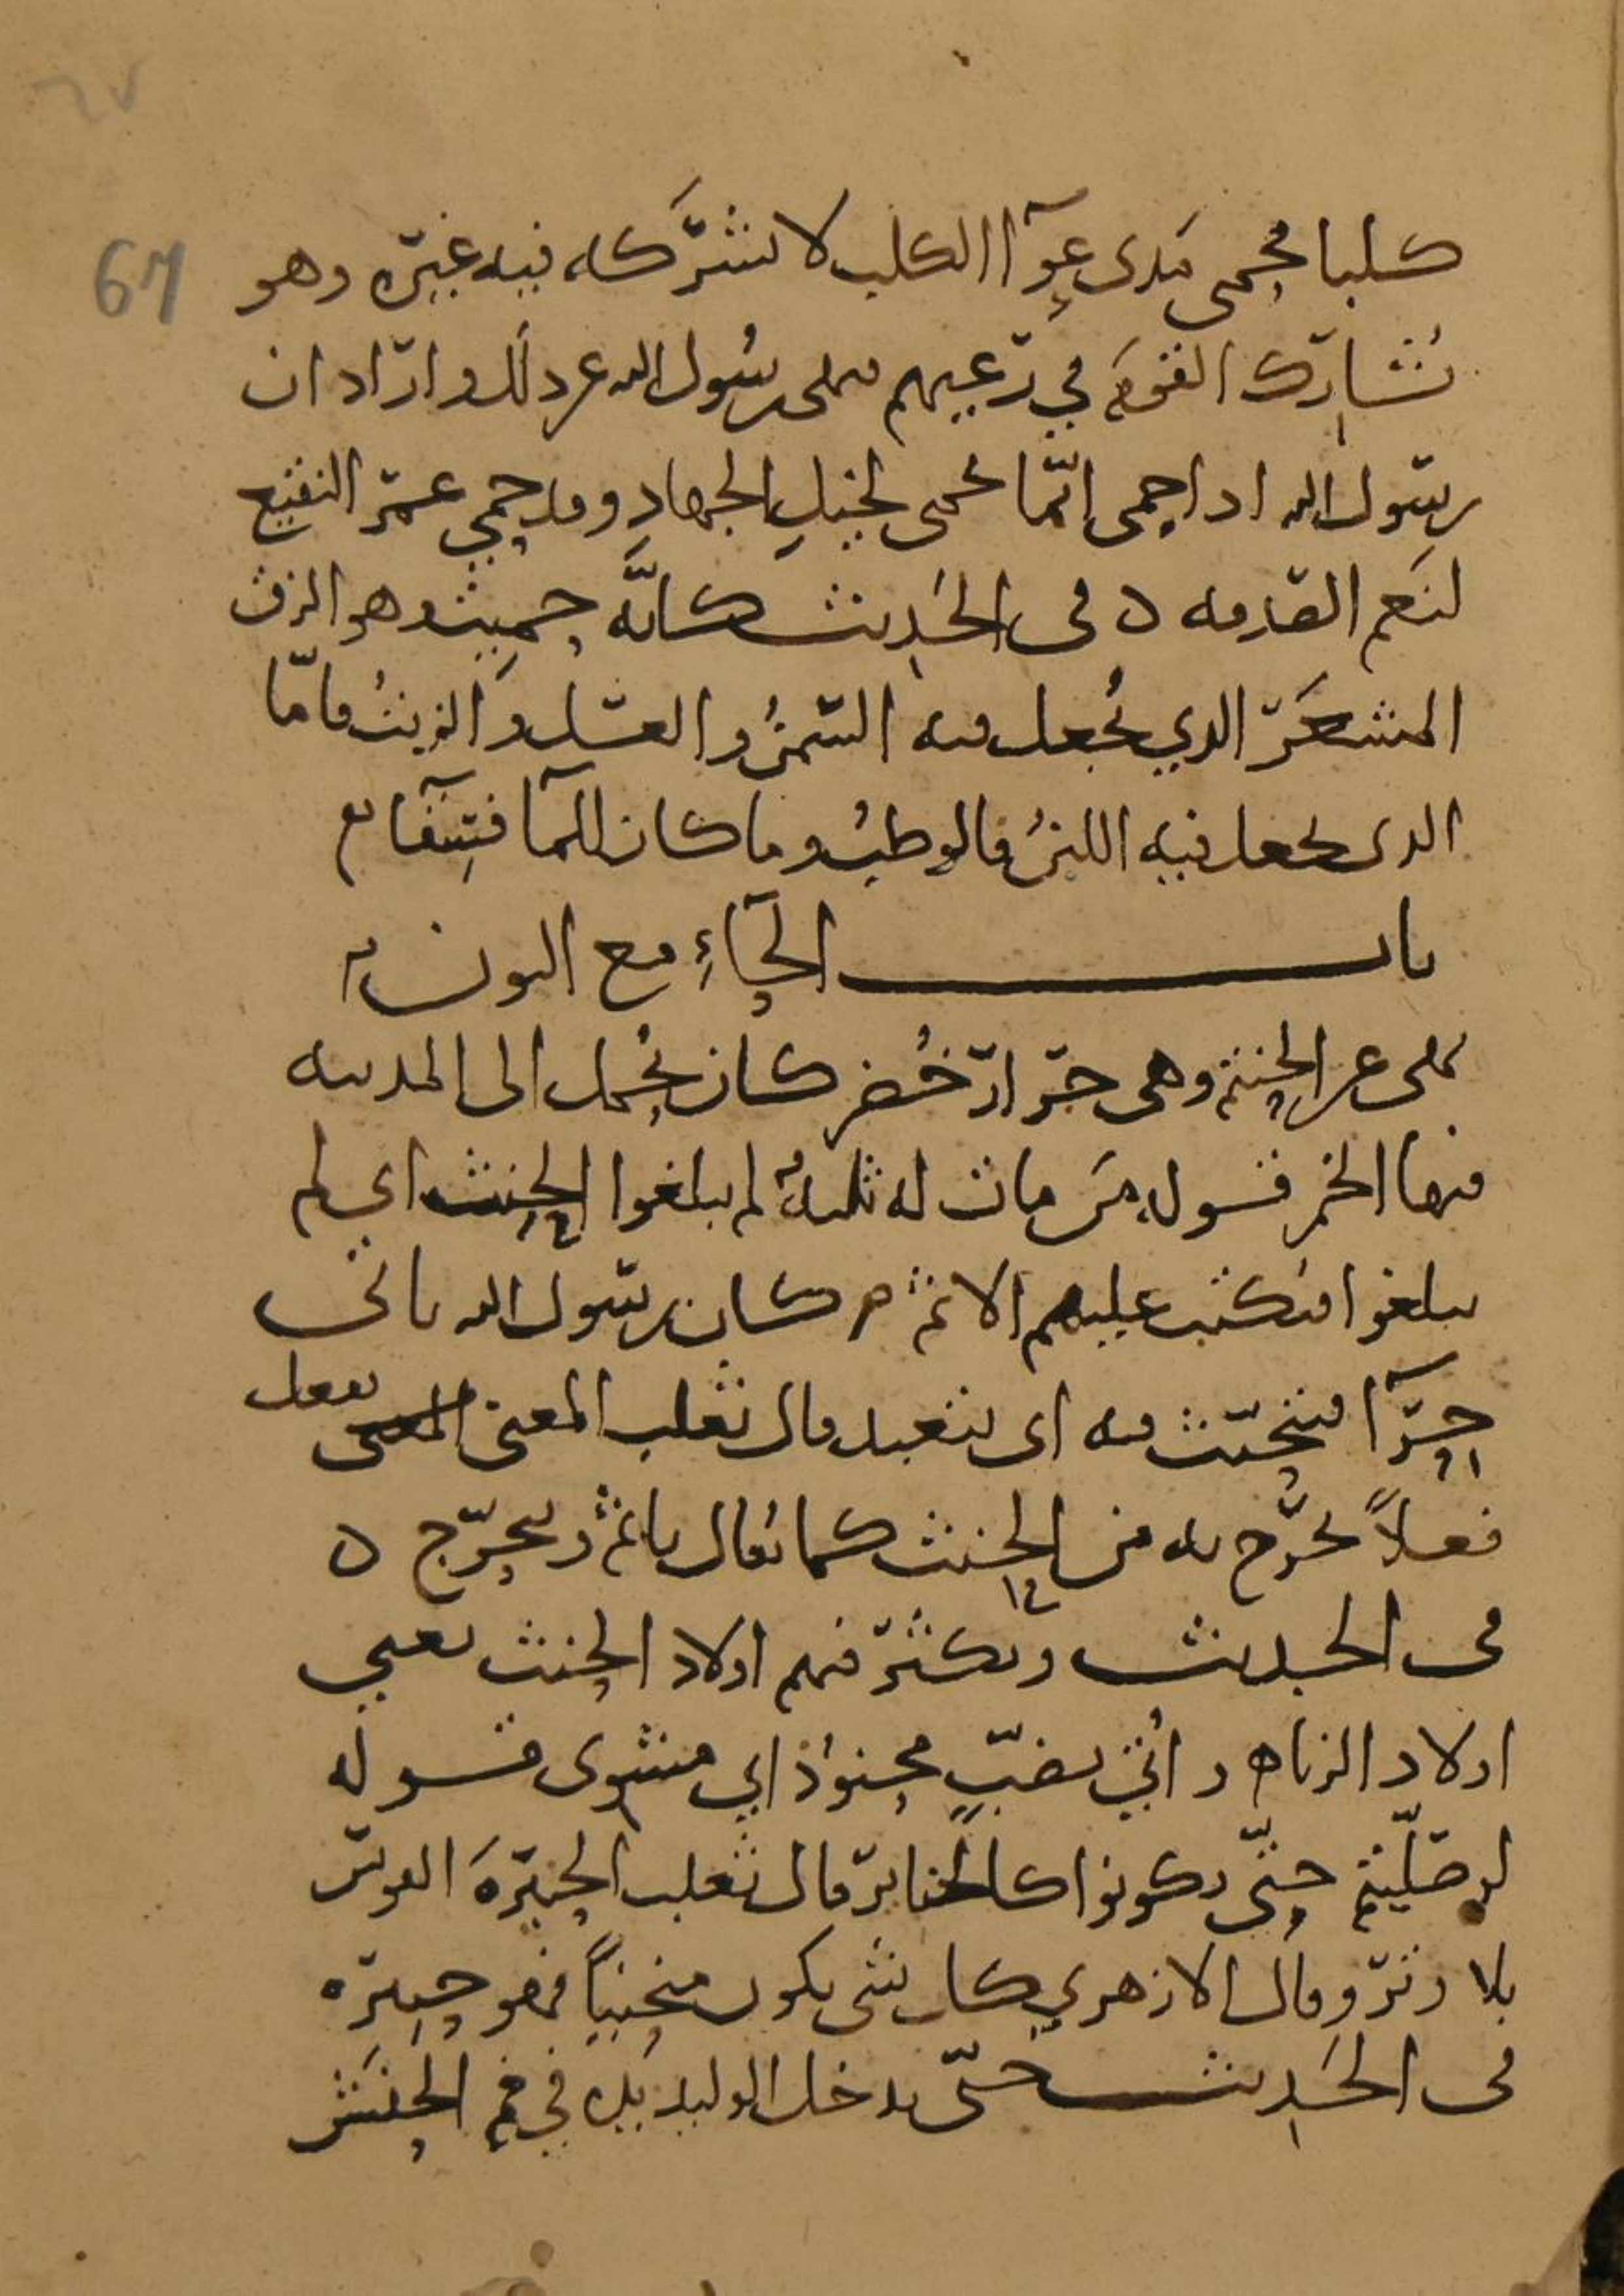 67
كلبا فحمى مدى عوآ الكلب لا يشركه فيه غيره وهو
يشارك القوم في رعيهم فنهى رسول الله عن ذلك واراد ان
رسول الله اذا حمى انما يحمى لخيل الجهاد وقد حمى عمر النقيع
لنعم الصدقه ٥ فى الحديث كانه حميت وهو الزق
المشعر الذي يجعل فيه السمن والعسل والزيت فامّا
الذى يجعل فيه اللبن فالوطب وما كان للمآ فسقا
باب الحاء مع النون
نهى عن الحنتم وهى جرار خضر كان يحمل الى المدينه
فيها الخمر قوله من مات له ثلثة لم يبلغوا الحنث اي لم
يبلغوا فيكتب عليهم الاثم كان رسول الله ياتى
حرآ فيتحنث فيه اى يتعبد قال ثعلب المعنى يفعل
فعلاً يخرج به من الحنث كما يقال ياثم ويتحرج ٥
فى الحديث ويكثر فيهم اولاد الحنث يعني
اولاد الزنا ٥ واُتي بضبٍ محنوذ اي مشوى قوله
لو صليتم حتّى تكونوا كالحنابر قال ثعلب الحنيرة القوس
بلا وتر وقال الازهري كل شى يكون منحنياً فهو حنيره
فى الحديث حتّى يدخل الوليد يده في فم الحنش